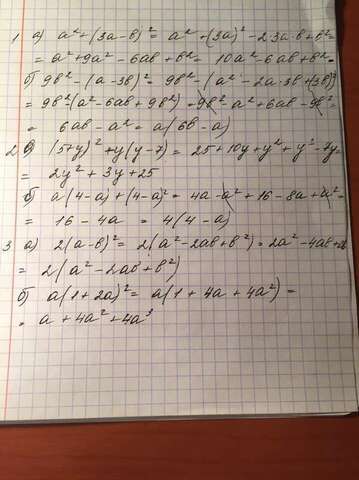 1 а) a² + (3a-b)² = a² + (3a)² - 2·3a·b + b² =
= a² + 9a² - 6ab + b² = 10a² - 6ab + b² =
б) 9b² - (a-3b)² = 9b² - (a² - 2a·3b + (3b)²)
= 9b² - (a² - 6ab + 9b²) = 9b² - a² + 6ab - 9b² =
= 6ab - a² = a(6b - a)
2 а) (5+y)² + y(y-7) = 25 + 10y + y² + y² - 7y =
= 2y² + 3y + 25
б) a(4-a) + (4-a)² = 4a - a² + 16 - 8a + a² =
= 16 - 4a = 4(4-a)
3 а) 2(a-b)² = 2(a² - 2ab + b²) = 2a² - 4ab +
= 2(a² - 2ab + b²)
б) a(1+2a)² = a(1 + 4a + 4a²) =
= a + 4a² + 4a³